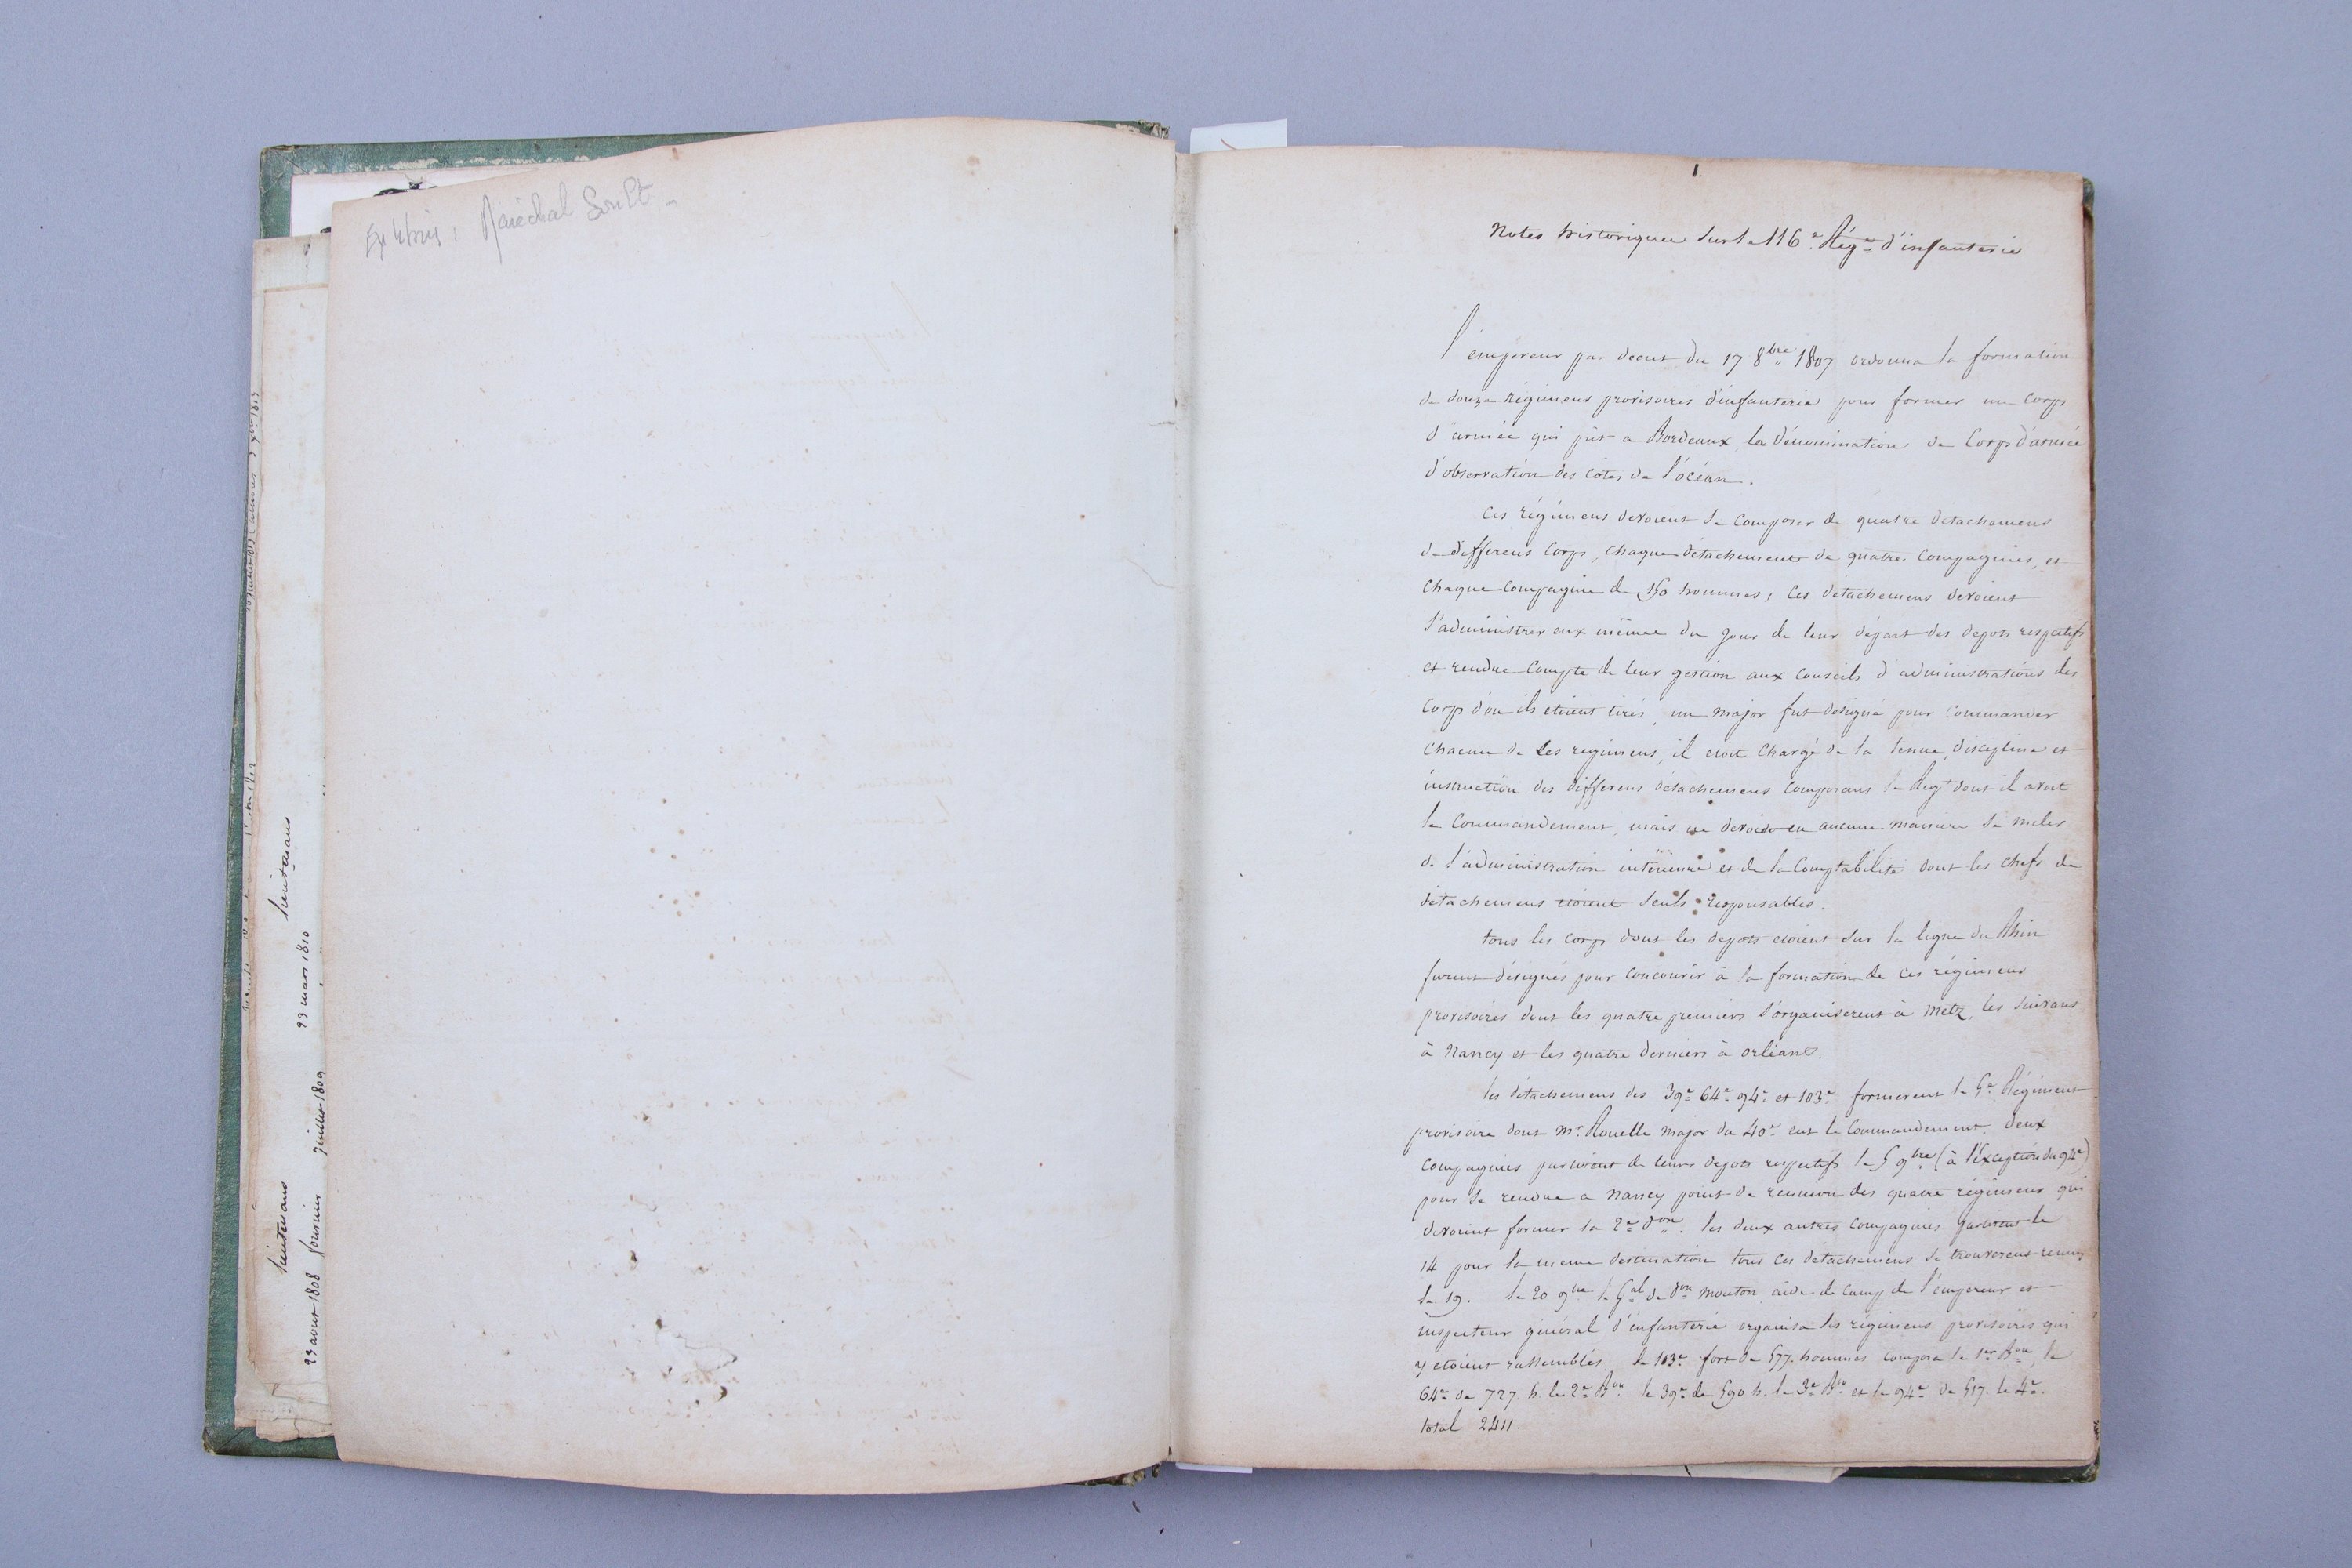 Ex libris : Maréchal Soult
Lieutenans
23 mars 1810
Lieutenans
23 aout 1808 fournier juillet 1809
1
Notes historiques sur le 116e. Régt. d'infanterie
l'empereur par decret du 17 8bre 1807 ordonna la formation
de douze régimens provisoires d'infanterie pour former un Corps
d'armée qui prit a Bordeaux la Dénomination de Corps d'armée
d'observation des côtes de l'océan.
Ces régimens devoient se Composer de quatre détachemens
de differens Corps, Chaque détachement de quatre Compagnies, et
Chaque Compagnie de 150 hommes; Ces détachemens devoient
s'administrer eux mêmes du jour de leur départ des depots respectifs
et rendre Compte de leur gestion aux Conseils d'administrations des
Corps d'ou ils etoient tirés, un major fut designé pour Commander
Chacun de Ces regimens, il etoit Chargé de la tenue, discipline et
instruction des differens détachemens Composans le Regt dont il avoit
le Commandement, mais ne devoit en aucune maniere se meler
de l'administration intérieure et de la Comptabilité dont les Chefs de
détachemens etoient seuls responsables.
tous les Corps dont les depots etoient sur la ligne du Rhin
furent désignés pour Concourir à la formation de ces régimens
provisoires dont les quatre premiers s'organiserent à Metz, les suivans
à Nancy et les quatre derniers à orléans.
les détachemens des 39e 64e 94e et 103e formerent le 5e. Régiment
provisoire dont Mr. Rouelle Major du 40e eut le Commandement. deux
Compagnies partirent de leurs depots respectifs le 5 9bre (à l'Exception du 94e)
pour se rendre a Nancy point de reunion des quatre régimens qui
devoient former la 2e Don. les deux autres Compagnies partirent le
14 pour la meme destination tous ces détachemens se trouverent reunis
le 19. le 20 9bre le Gal de Don Mouton aide de Camp de l'empereur et
inspecteur général d'infanterie organisa les régimens provisoires qui
y etoient rassemblés. le 103e fort de 577 hommes Composa le 1er Bon, le
64e de 727. h. le 2e Bon le 39e de 590 h. le 3e Bon et le 94e de 517. le 4e.
total 2411.